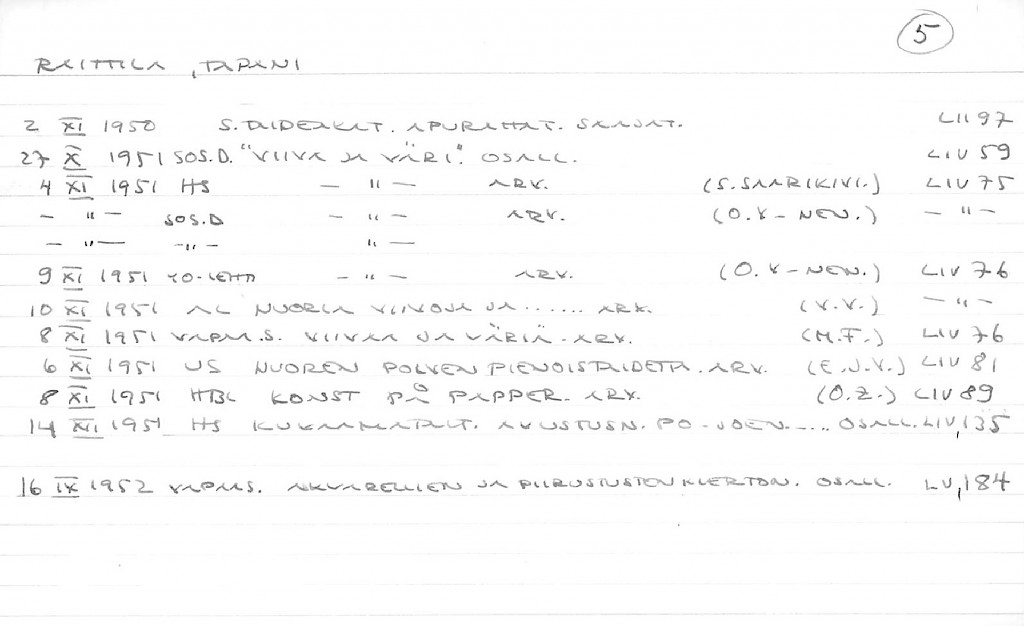 5
RAITTILA, TAPANI
2 XI 1950 S. TAIDEAKAT. APURAHAT. SAAJAT. LII 97
27 X 1951 SOS.D. "VIIVA JA VÄRI". OSALL. LIV 59
4 XI 1951 HS — " — ARV. (S. SAARIKIVI.) LIV 75
— " — SOS.D — " — ARV. (O.V-NEN.) — " —
— " — — " — " —
9 XI 1951 YO-LEHTI — " — ARV. (O.V-NEN.) LIV 76
10 XI 1951 AL NUORIA VIIVOJA JA ...... ARV. (V.V.) — " —
8 XI 1951 VAPAA S. VIIVAA JA VÄRIÄ. ARV. (M.F.) LIV 76
6 XI 1951 US NUOREN POLVEN PIENOISTAIDETTA. ARV. (E.J.V.) LIV 81
8 XI 1951 HBL KONST PÅ PAPPER. ARV. (O.Z.) LIV 89
14 XII 1951 HS KUKAMMATALT. AVUSTUSN. PO-JOEN..... OSALL. LIV,135
16 IX 1952 VAPAA S. AKVARELLIEN JA PIIRUSTUSTEN KIERTON. OSALL. LV,184